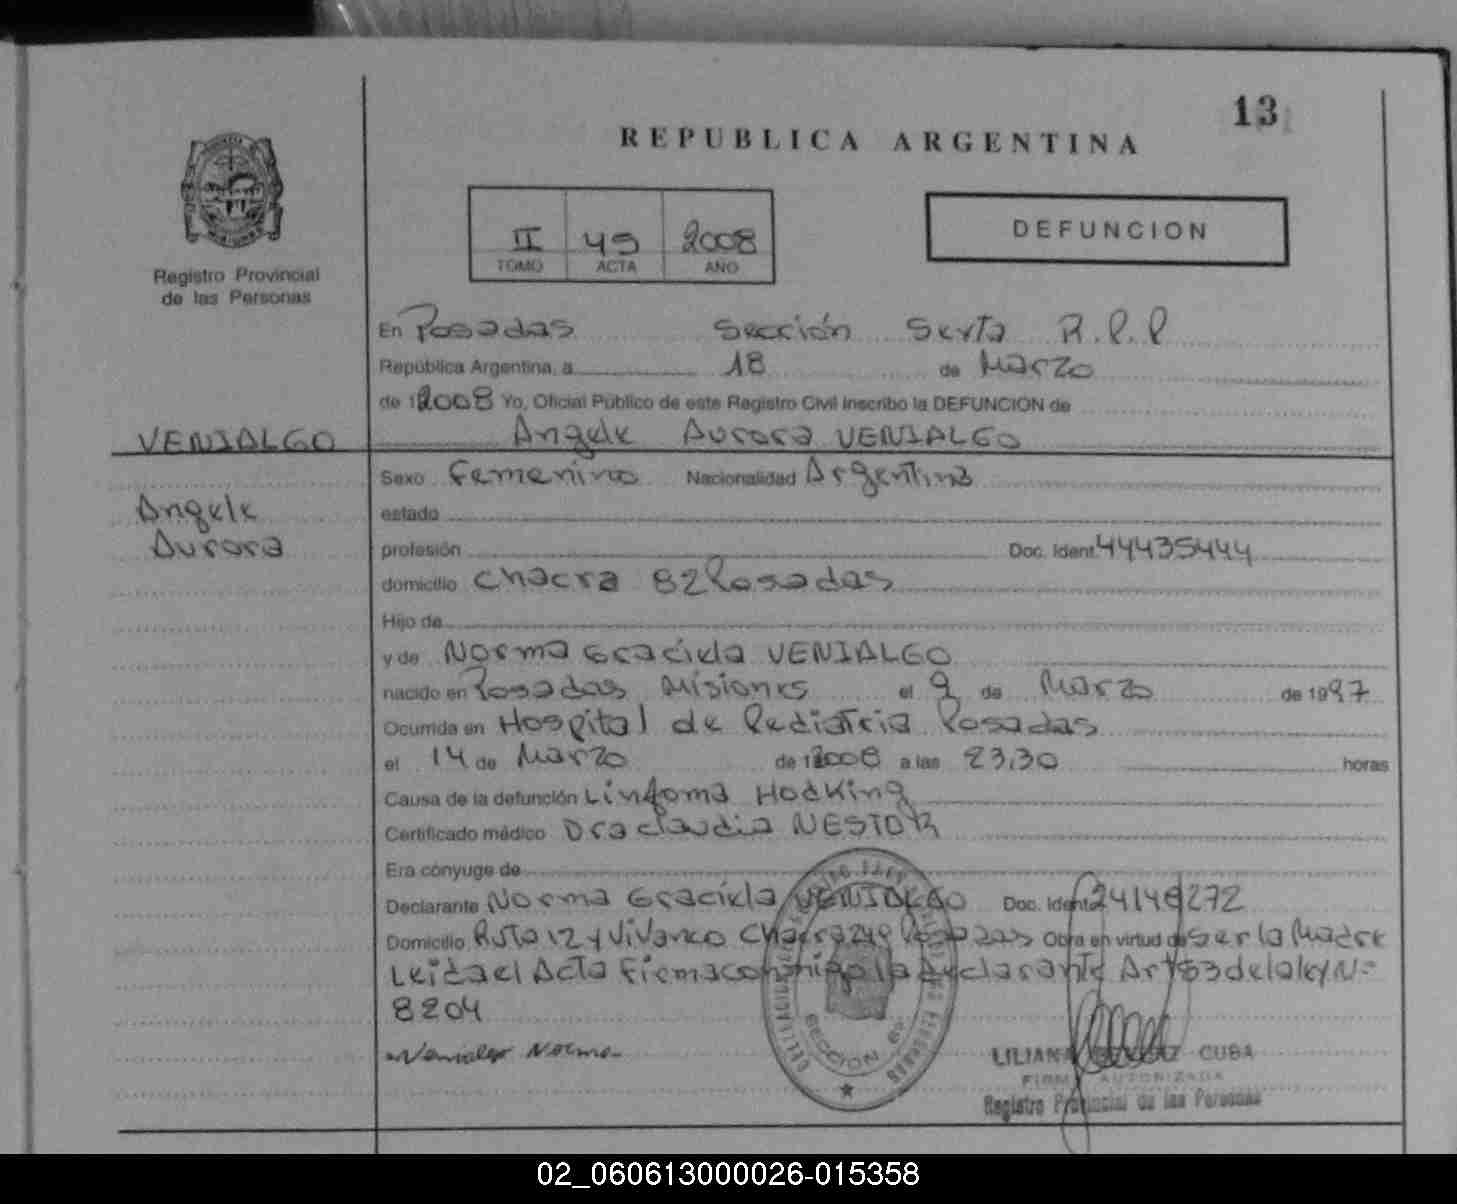 13
REPUBLICA ARGENTINA
II 45 2008
TOMO ACTA AÑO
DEFUNCION
Registro Provincial
de las Personas
En Posadas Sección Sexta R.P.P
República Argentina, a 18 de Marzo
de 2008 Yo, Oficial Público de este Registro Civil inscribo la DEFUNCION de
VENIALGO
Angele Aurora VENIALGO
Angele
Aurora
Sexo Femenino Nacionalidad Argentina
estado
profesión Doc. Ident. 44435444
domicilio Chacra 82 Posadas
Hijo de
y de Norma Graciela VENIALGO
nacido en Posadas Misiones el 9 de Marzo de 1997
Ocurrida en Hospital de Pediatria Posadas
el 14 de Marzo de 2008 a las 23,30 horas
Causa de la defunción Linfoma Hodking
Certificado médico Dra Claudia NESTOR
Era cónyuge de
Declarante Norma Graciela VENIALGO Doc. Ident. 24148272
Domicilio Ruta 12 y Vivanco Chacra 249 Posadas Obra en virtud de ser la Madre
Leida el Acta Firma conmigo la declarante Art 53 de la ley N=
8204
Venialgo Norma
SECCION 6ª
LILIANA CUBA
FIRMA AUTORIZADA
Registro Provincial de las Personas
02_060613000026-015358